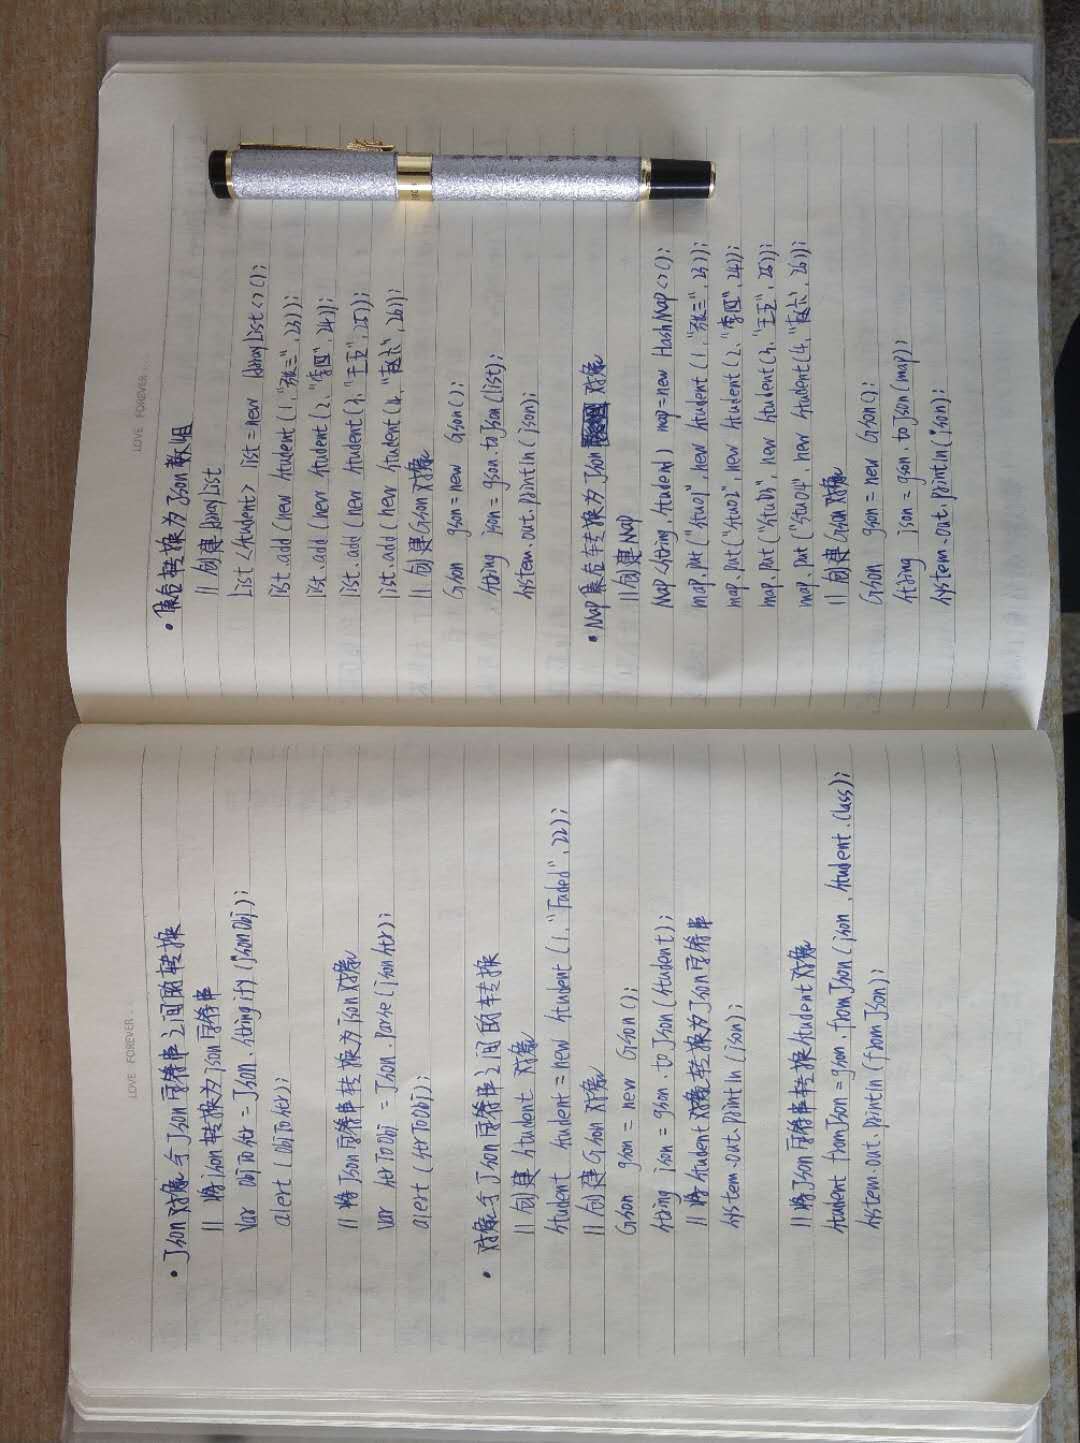 LOVE FOREVER...
• Json对象与Json字符串之间的转换
// 将json转换为json字符串
var objToStr = Json.stringify(jsonObj);
alert(objToStr);
// 将Json字符串转换为json对象
var strToObj = Json.parse(jsonStr);
alert(strToObj);
• 对象与Json字符串之间的转换
// 创建Student对象
Student student = new Student(1,"Faded",22);
// 创建Gson对象
Gson gson = new Gson();
String json = gson.toJson(student);
// 将Student对象转换为Json字符串
System.out.println(json);
// 将Json字符串转换Student对象
Student fromJson = gson.fromJson(json,Student.class);
System.out.println(fromJson);
LOVE FOREVER...
• 集合转换为Json数组
// 创建ArrayList
List<Student> list = new ArrayList<>();
list.add(new Student(1,"张三",23));
list.add(new Student(2,"李四",24));
list.add(new Student(3,"王五",25));
list.add(new Student(4,"赵六",26));
// 创建Gson对象
Gson gson = new Gson();
String json = gson.toJson(list);
System.out.println(json);
• Map集合转换为Json对象
// 创建Map
Map<String,Student> map = new HashMap<>();
map.put("stu01",new Student(1,"张三",23));
map.put("stu02",new Student(2,"李四",24));
map.put("stu03",new Student(3,"王五",25));
map.put("stu04",new Student(4,"赵六",26));
// 创建Gson对象
Gson gson = new Gson();
String json = gson.toJson(map);
System.out.println(json);